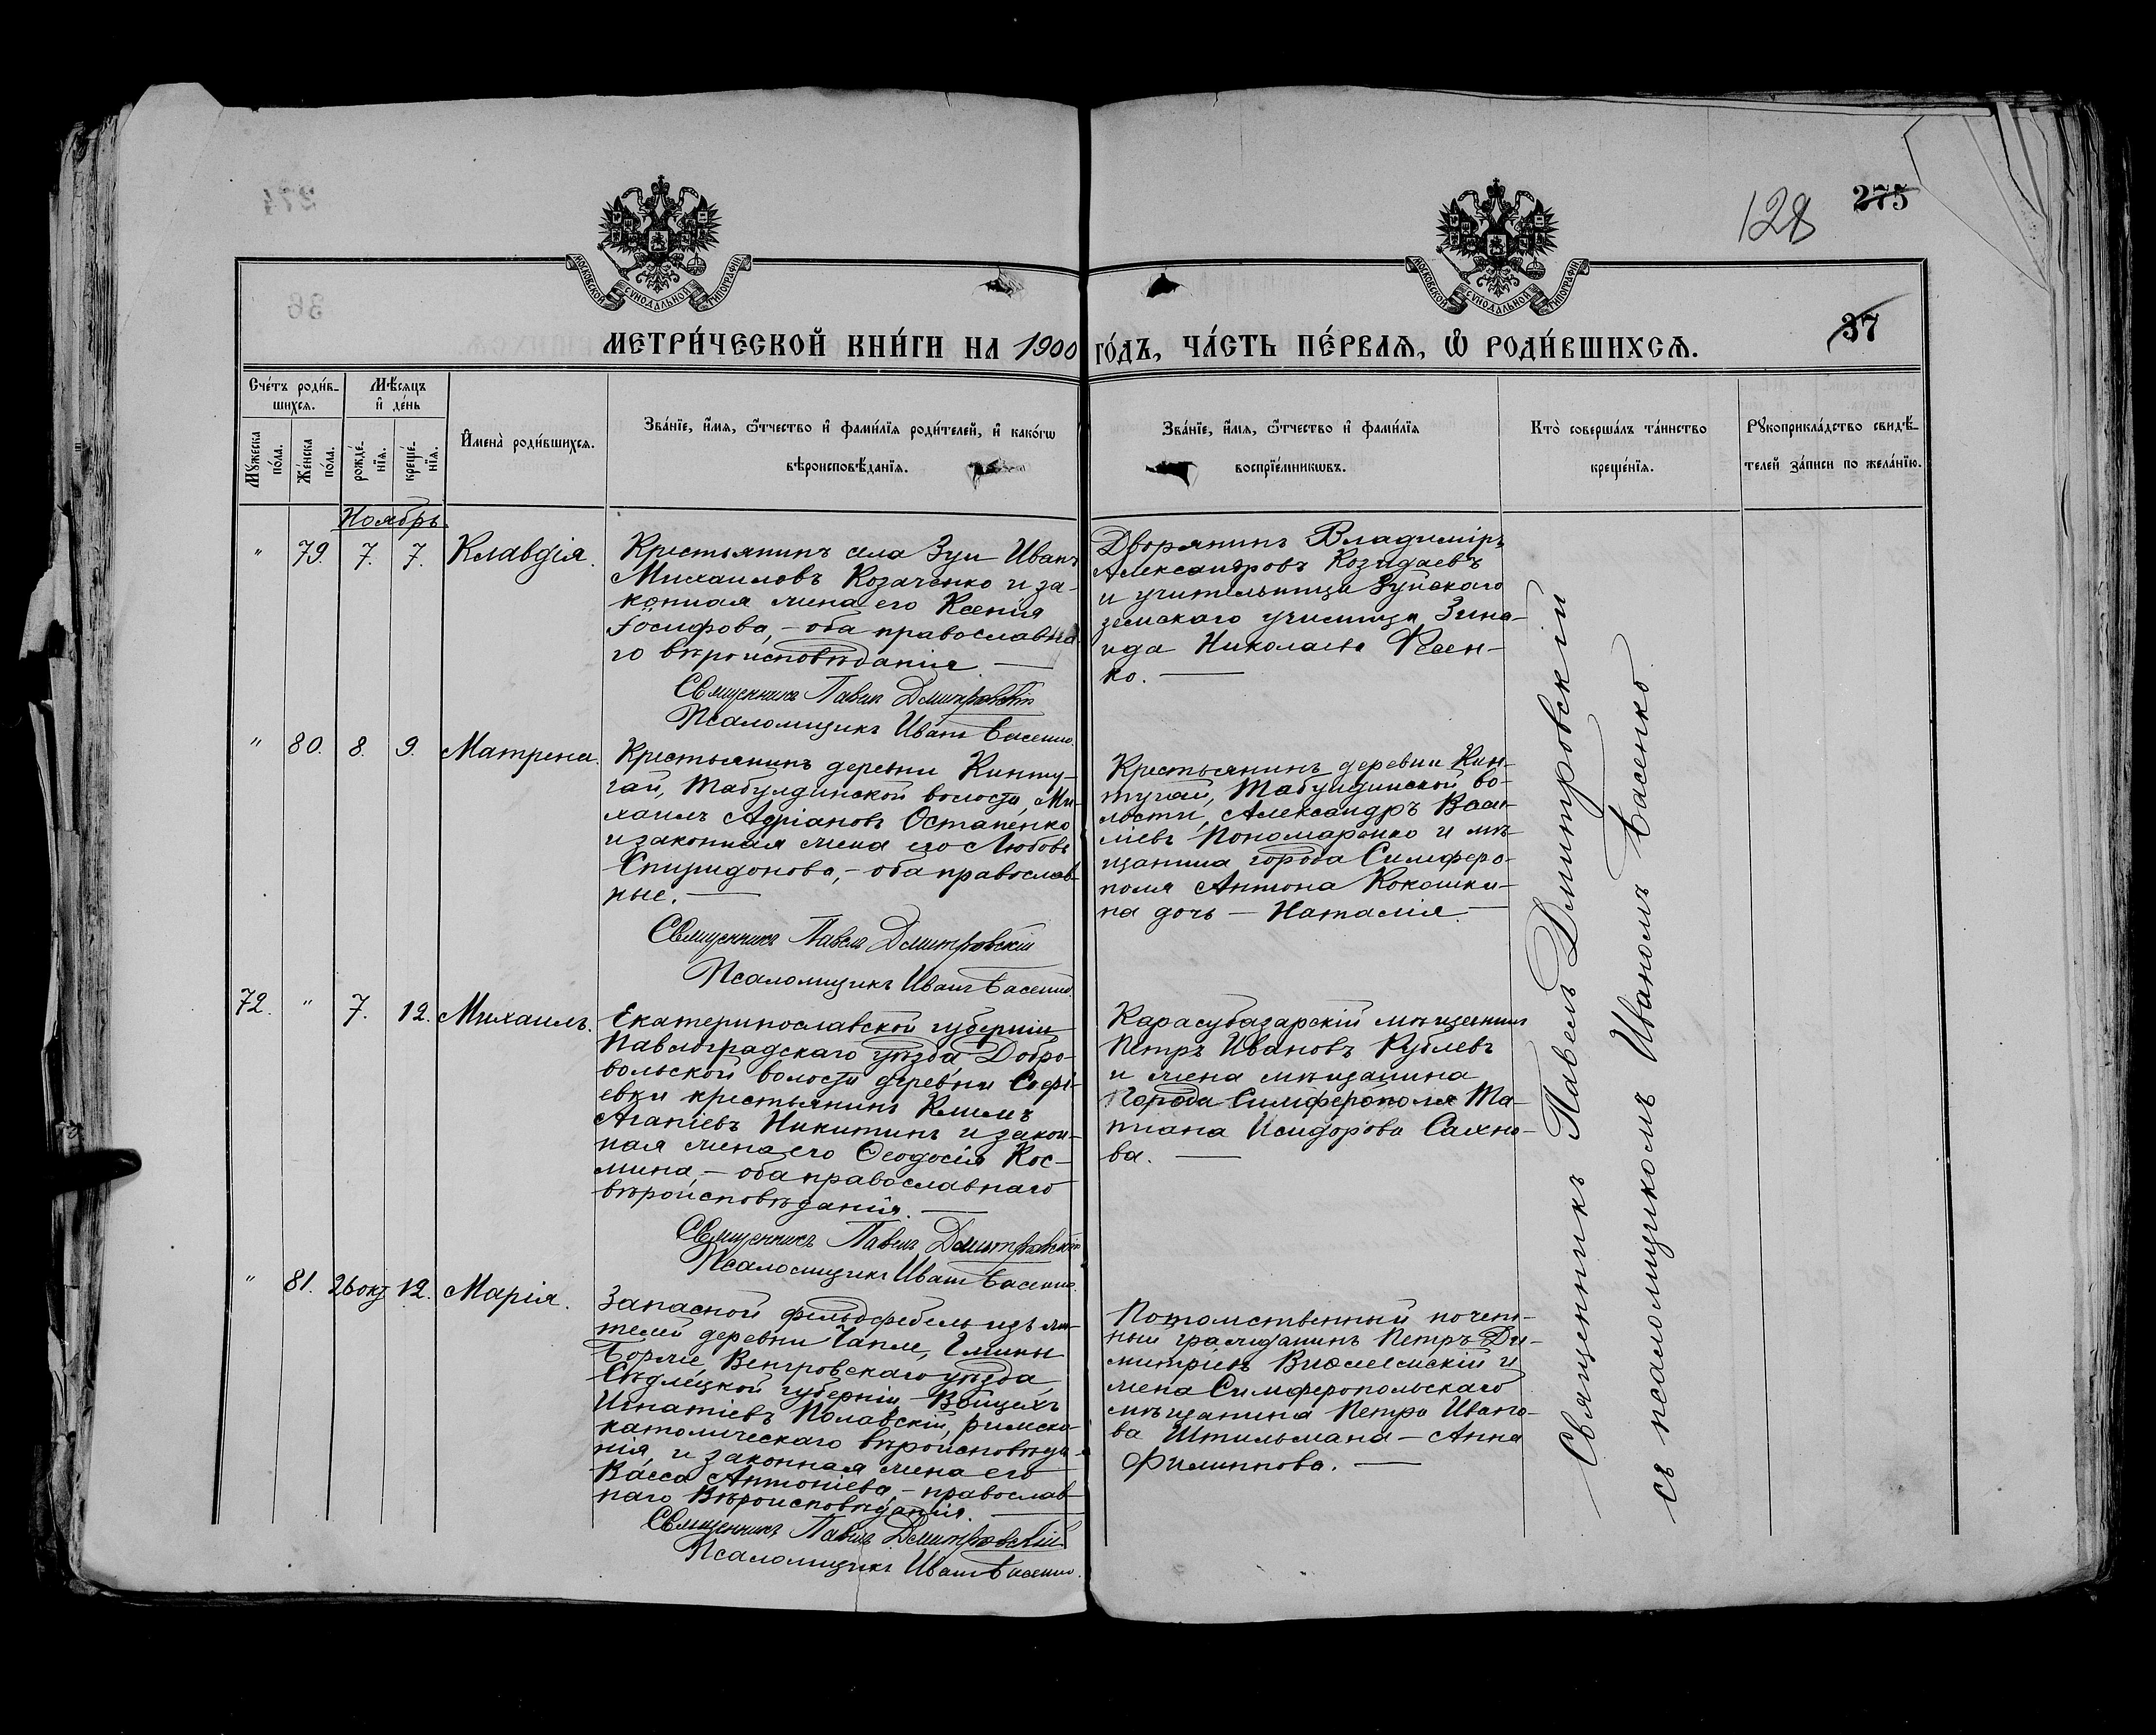 128
275
МОСКОВСКОЙ СѴНОДАЛЬНОЙ ТИПОГРАФІИ
МОСКОВСКОЙ СѴНОДАЛЬНОЙ ТИПОГРАФІИ
37
МЕТРИ́ЧЕСКОЙ КНИ́ГИ НА 1900 ГО́ДЪ, ЧА́СТЬ ПЕ́РВАѦ, Ѡ҆ РОДИ́ВШИХСѦ.
Сче́тъ роди́в-
шихсѧ.
Мѣ́сѧцъ
и҆ де́нь
Мꙋ́жеска
по́ла.
Же́нска
по́ла.
рожде́-
нїѧ.
креще́-
нїѧ.
И҆мена̀ роди́вшихсѧ.
Зва́нїе, и҆́мѧ, ѻ҆́тчество и҆ фами́лїѧ роди́телей, и҆ како́гѡ
вѣроисповѣ́данїѧ.
Зва́нїе, и҆́мѧ, ѻ҆́тчество и҆ фами́лїѧ
воспрїе́мникѡвъ.
Кто̀ соверша́лъ та́инство
креще́нїѧ.
Рꙋкоприкла́дство свидѣ́-
телей за́писи по жела́нїю.
Ноябрь
" 79. 7. 7. Клавдія.
Крестьянинъ села Зуи Иванъ
Михаиловъ Козаченко и за-
конная жена его Ксенія
Іосифова, – оба православна-
го вѣроисповѣданія —
Священникъ Павелъ Дмитровскій
Псаломщикъ Иванъ Басенко.
Дворянинъ Владиміръ
Александровъ
и учительница Зуйскаго
земскаго училища Зина-
ида Николаева
ко. —
" 80. 8. 9. Матрена.
Крестьянинъ деревни Кинту-
гай, Табулдинской волости, Ми-
хаилъ Адріановъ Остапенко
и законная жена его Любовь
Спиридонова, – оба православ-
ные. —
Священникъ Павелъ Дмитровскій
Псаломщикъ Иванъ Басенко.
Крестьянинъ деревни Кин-
тугай, Табулдинской во-
лости, Александръ Васи-
ліевъ Пономаренко и мѣ-
щанина города Симферо-
поля Антона Кокошки-
на дочь — Наталія. —
72. " 7. 12. Михаилъ.
Екатеринославской губерніи
Павлоградскаго уѣзда Добро-
вольской волости деревни Софі-
евки крестьянинъ Климъ
Агапіевъ Никитинъ и закон-
ная жена его Ѳеодосія Кос-
мина, – оба православнаго
вѣроисповѣданія. —
Священникъ Павелъ Дмитровскій
Псаломщикъ Иванъ Басенко.
Карасубазарскій мѣщанинъ
Петръ Ивановъ Кублевъ
и жена мѣщанина
города Симферополя Та-
тіана Исидорова Сахно-
ва. —
" 81. 26 окт. 12. Марія.
Запасной фельдфебель изъ жи-
телей деревни Чапле, Гмины
Борже, Венгровскаго уѣзда
Сѣдлецкой губерніи Войцехъ
Игнатіевъ Полавскій, римско-
католическаго вѣроисповѣда-
нія, и законная жена его
Васса Антоніева, – православ-
наго вѣроисповѣданія. —
Священникъ Павелъ Дмитровскій
Псаломщикъ Иванъ Басенко.
Потомственный почет-
ный гражданинъ Петръ Ди-
митріевъ и
жена Симферопольскаго
мѣщанина Петра Ивано-
ва Штильмана — Анна
Филиппова. —
Священникъ Павелъ Дмитровскій
съ псаломщикомъ Иваномъ Басенко